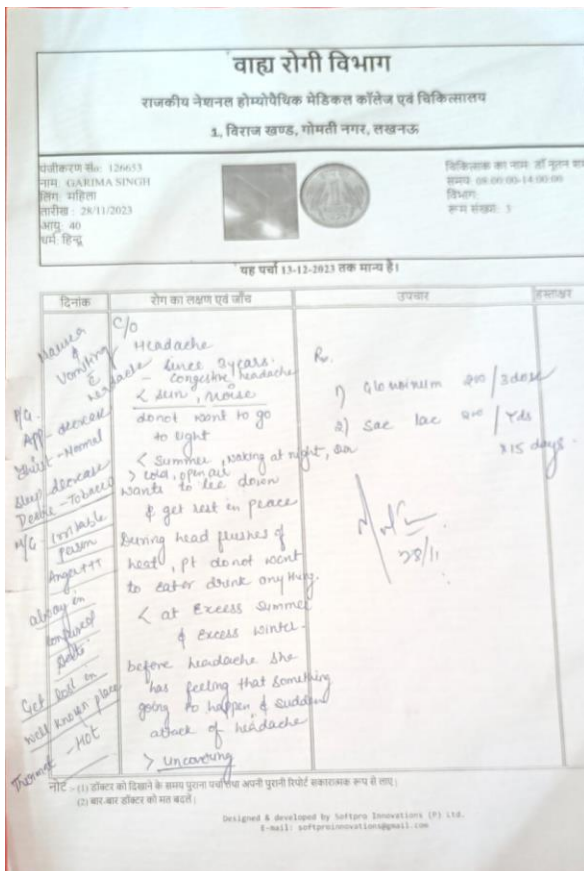 वाह्य रोगी विभाग
राजकीय नेशनल होम्योपैथिक मेडिकल कॉलेज एवं चिकित्सालय
1, विराज खण्ड, गोमती नगर, लखनऊ
पंजीकरण सं०: 126653
नाम: GARIMA SINGH
लिंग: महिला
तारीख : 28/11/2023
आयु: 40
धर्म: हिन्दू
चिकित्सक का नाम: डॉ नूतन
समय: 08:00:00-14:00:00
विभाग:
रूम संख्या: 3
यह पर्चा 13-12-2023 तक मान्य है।
दिनांक रोग का लक्षण एवं जाँच उपचार हस्ताक्षर
Nausea
&
vomiting
c̄
headache
P/G -
App - decrease
Thirst - Normal
Sleep decrease
Desire - Tobacco
M/G - Irritable
person
Anger+++
alway in
Get lost in
well known place
Thermal - HOT
C/O
Headache
since 2years.
- congestive headache
< sun, noise
donot want to go
to light
< Summer, waking at night,
> cold, open air
wants to lie down
& get rest in peace
During head flushes of
heat, pt do not want
to eat or drink anything.
< at Excess Summer
& Excess winter.
before headache she
has feeling that something
going to happen & sudden
attack of headache
> Uncovering
Rx.
1) Glonoinum 200 / 3dose
2) Sac lac 200 / Tds
x15 days.
28/11
नोट - (1) डॉक्टर को दिखाने के समय पुराना पर्चा तथा अपनी पुरानी रिपोर्ट सकारात्मक रूप से लाए।
(2) बार-बार डॉक्टर को मत बदलें।
Designed & developed by Softpro Innovations (P) Ltd.
E-mail: softproinnovations@gmail.com